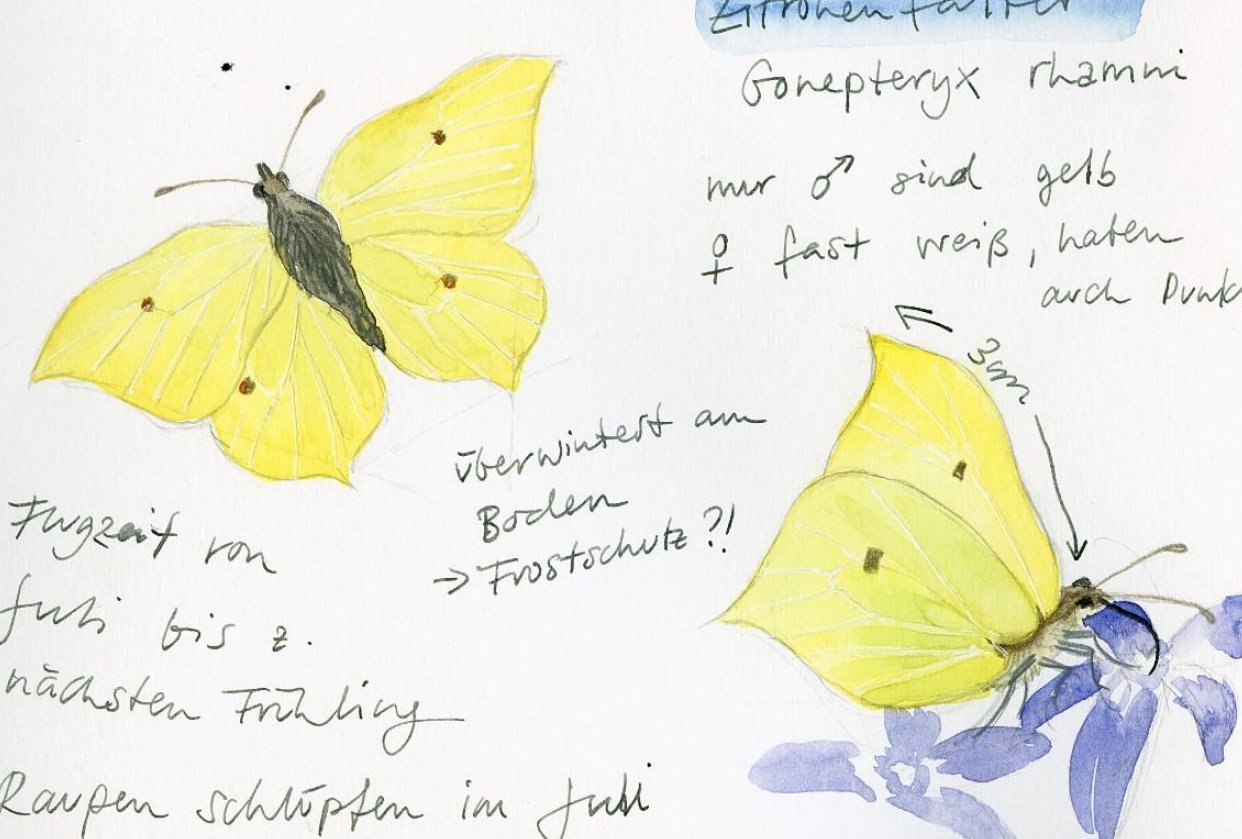 Zitronenfalter
Gonepteryx rhamni
nur ♂ sind gelb
♀ fast weiß, haben
auch Punk
3cm
überwintert am
Boden
→ Frostschutz ?!
Flugzeit von
Juli bis z.
nächsten Frühling
Raupen schlüpfen im Juli